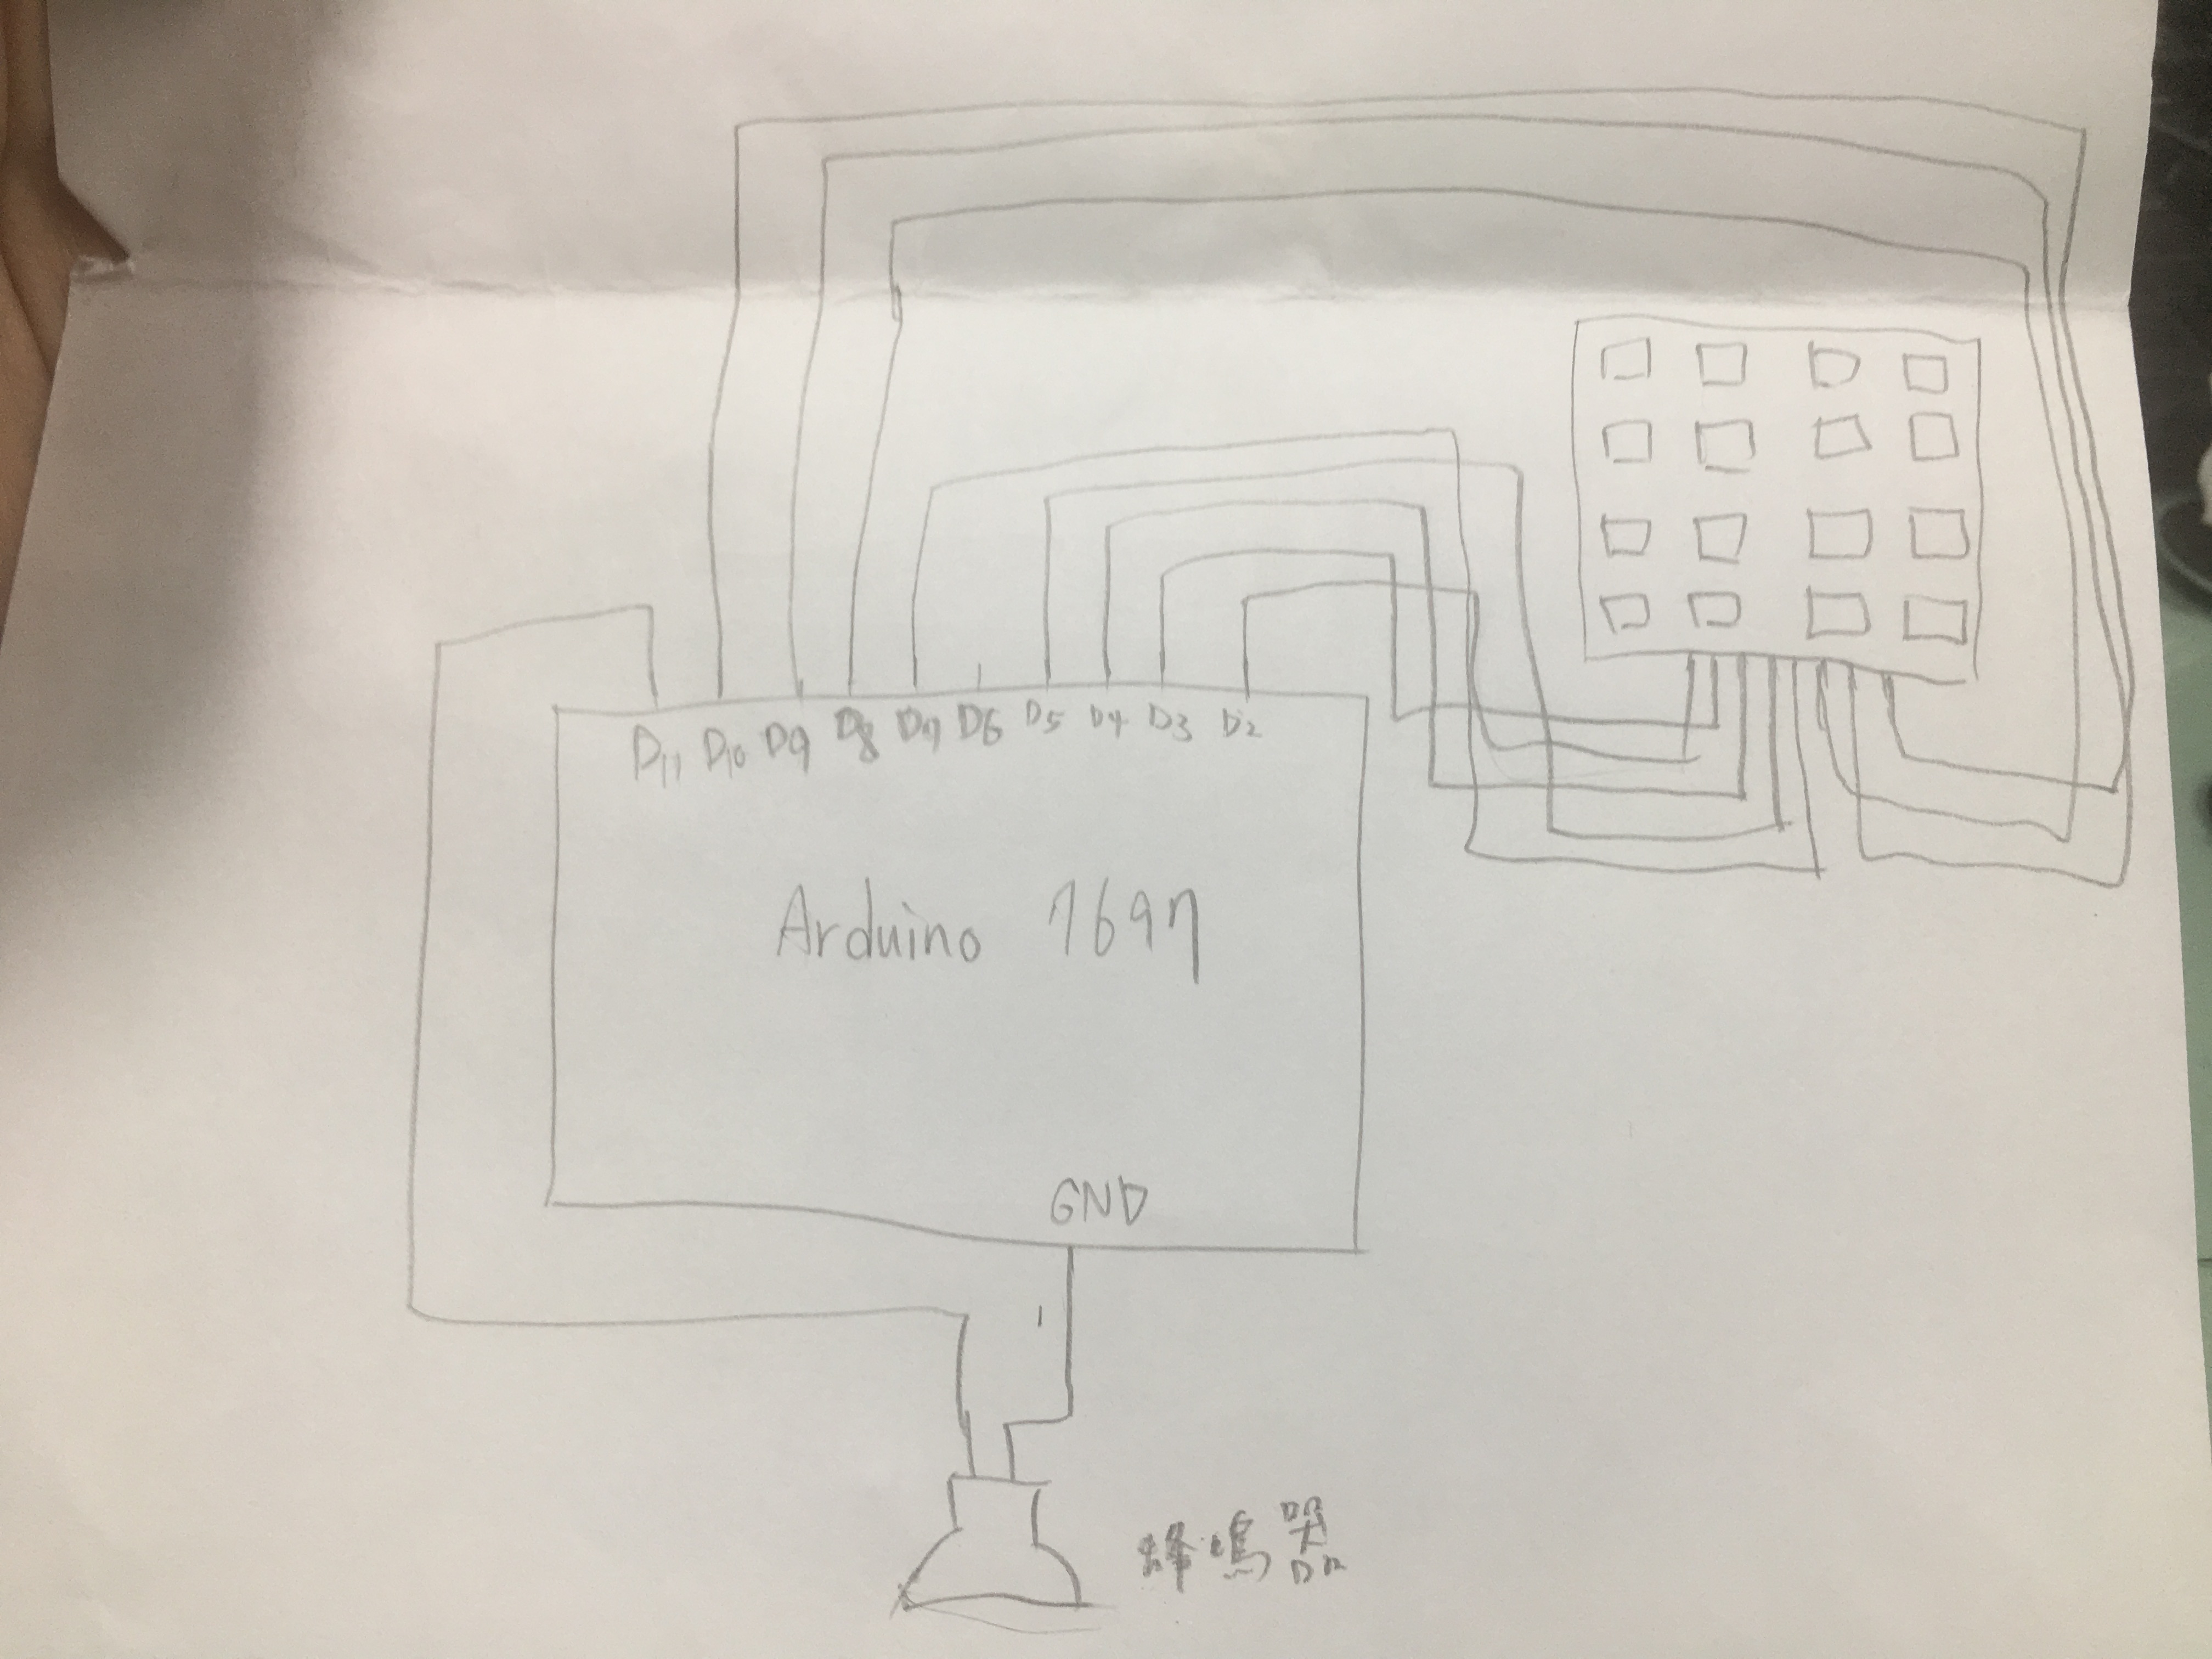 D11 D10 D9 D8 D7 D6 D5 D4 D3 D2
Arduino 7697
GND
蜂鳴器